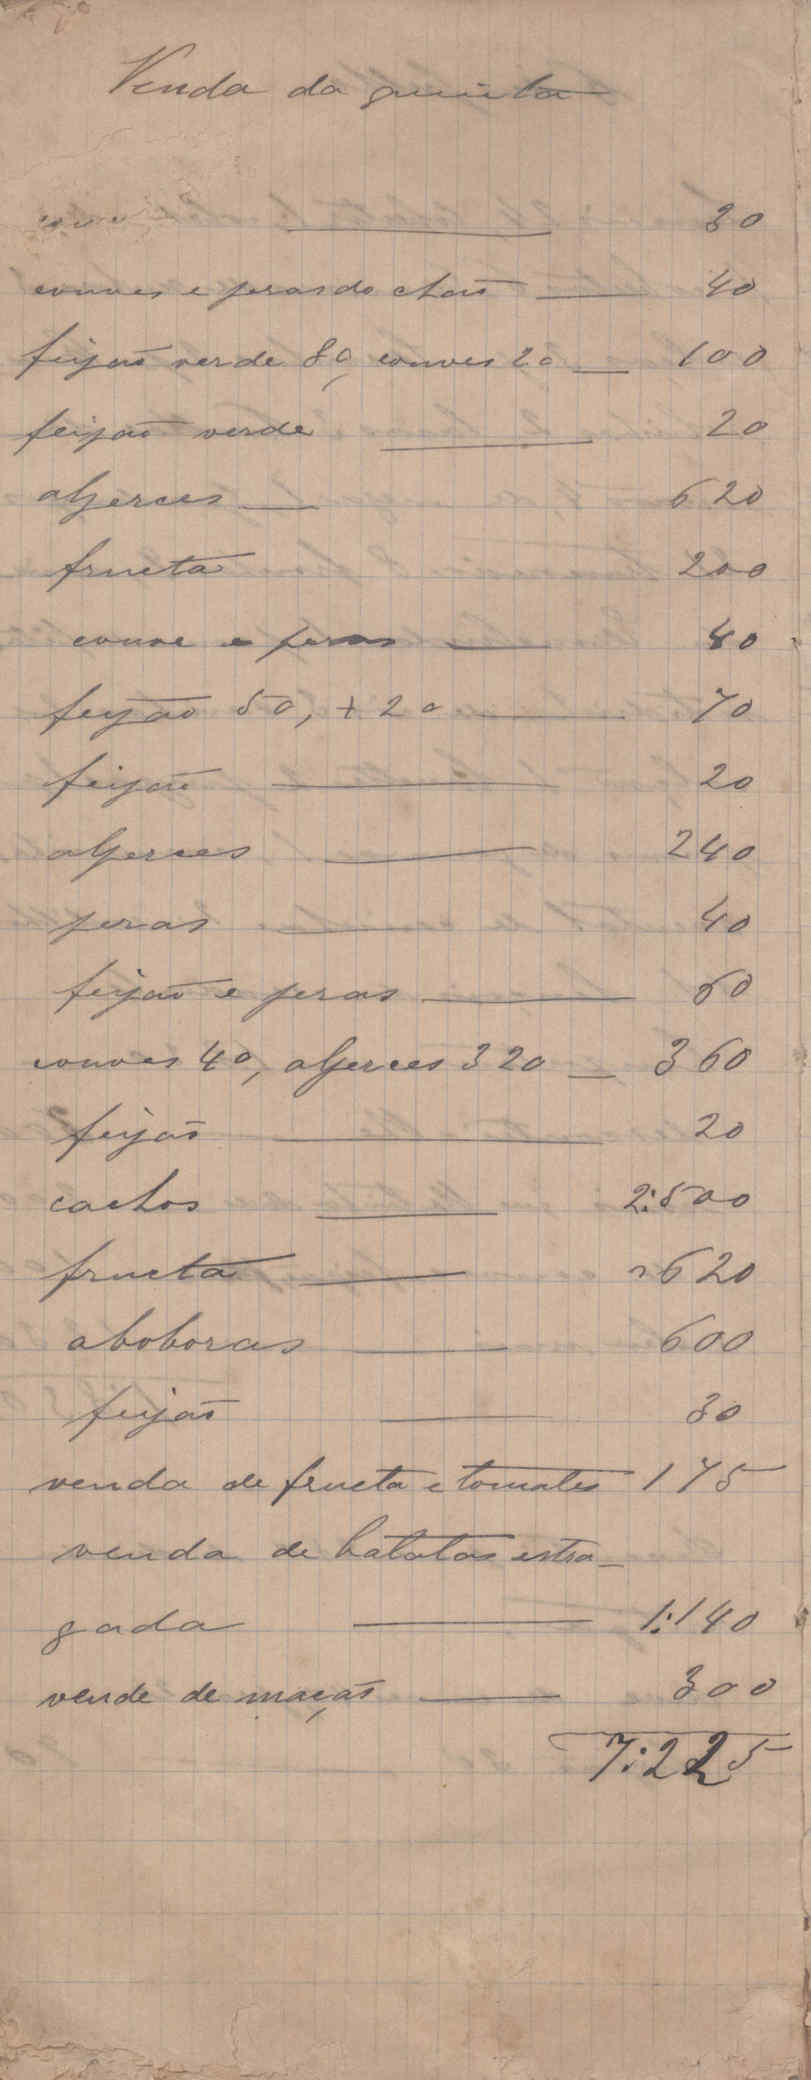 Venda da quinta
couve 30
couves e peras do chão 40
feijão verde 80, couves 20 100
feijão verde 20
alperces 620
fructa 200
couve e peras 80
feijão 50, + 20 70
feijão 20
alperces 240
peras 40
feijão e peras 60
couves 40, alperces 320 360
feijão 20
cachos 2:500
fructa 620
aboboras 600
feijão 30
venda de fructa e tomates 175
venda de batatas estra-
gada 1:140
vende de maçãs 300
7:225